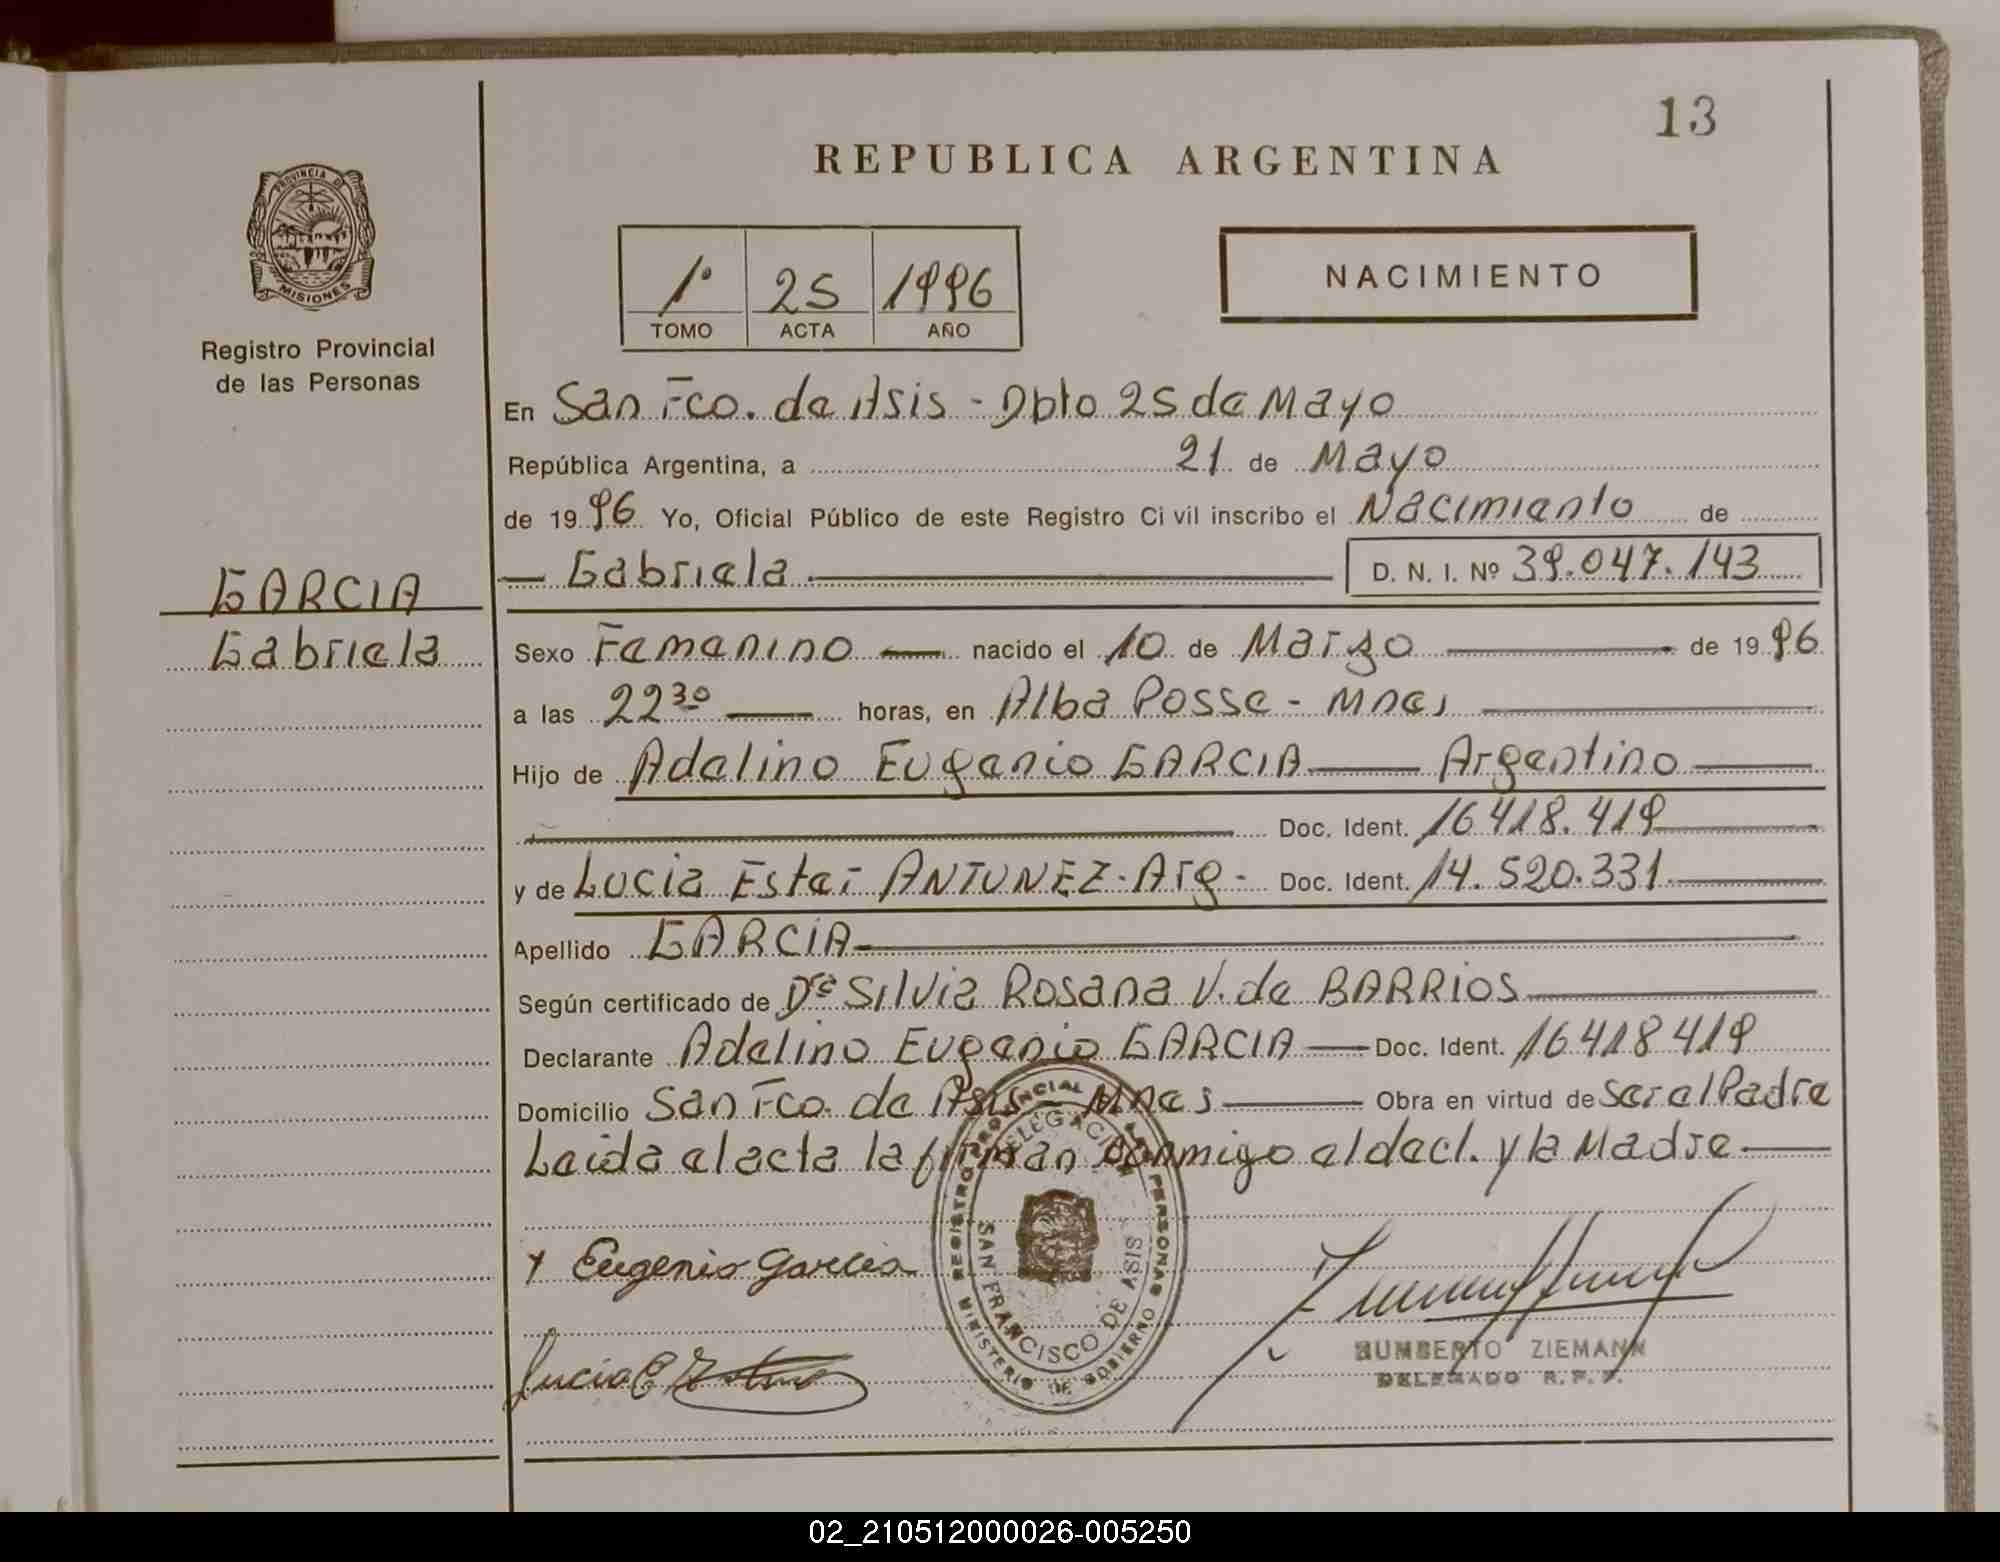 13
REPUBLICA ARGENTINA
PROVINCIA DE
MISIONES
Registro Provincial
de las Personas
1º 25 1996
TOMO ACTA AÑO
NACIMIENTO
En San Fco. de Asis - Dpto 25 de Mayo
República Argentina, a 21 de Mayo
de 1996 Yo, Oficial Público de este Registro Civil inscribo el Nacimiento de
Gabriela D. N. I. Nº 39.047.143
GARCIA
Gabriela
Sexo Femenino nacido el 10 de Marzo de 1996
a las 22 30 horas, en Alba Posse - Mnes
Hijo de Adelino Eugenio GARCIA Argentino
Doc. Ident. 16.418.419
y de Lucia Ester ANTUNEZ - Arg - Doc. Ident. 14.520.331
Apellido GARCIA
Según certificado de Silvia Rosana V. de BARRIOS
Declarante Adelino Eugenio GARCIA Doc. Ident. 16418419
Domicilio San Fco. de Asis - Mnes Obra en virtud de ser el Padre
Leida el acta la firman conmigo el decl. y la Madre
Eugenio Garcia
Lucia E
REGISTRO PROVINCIAL DE LAS PERSONAS
DELEGACION
SAN FRANCISCO DE ASIS
MINISTERIO DE GOBIERNO
HUMBERTO ZIEMANN
DELEGADO R. P. P.
02_210512000026-005250